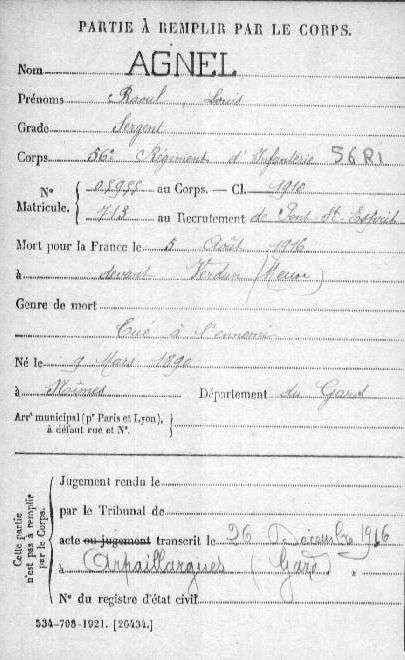 PARTIE À REMPLIR PAR LE CORPS.
Nom AGNEL
Prénoms Raoul, Louis
Grade Sergent
Corps 56e Régiment d'Infanterie 56 RI
N° Matricule. { au Corps. — Cl. 1910
713 au Recrutement de Pont St-Esprit
Mort pour la France le 5 Août 1916
à devant Verdun (Meuse)
Genre de mort
Tué à l'ennemi
Né le 9 Mars 1890
à Nîmes Département du Gard
Arrt municipal (pr Paris et Lyon), à défaut rue et N°. }
Cette partie n'est pas à remplir par le Corps. {
Jugement rendu le
par le Tribunal de
acte ou jugement transcrit le 26 Décembre 1916
à Arpaillargues (Gard)
N° du registre d'état civil
534-708-1921. [26434.]